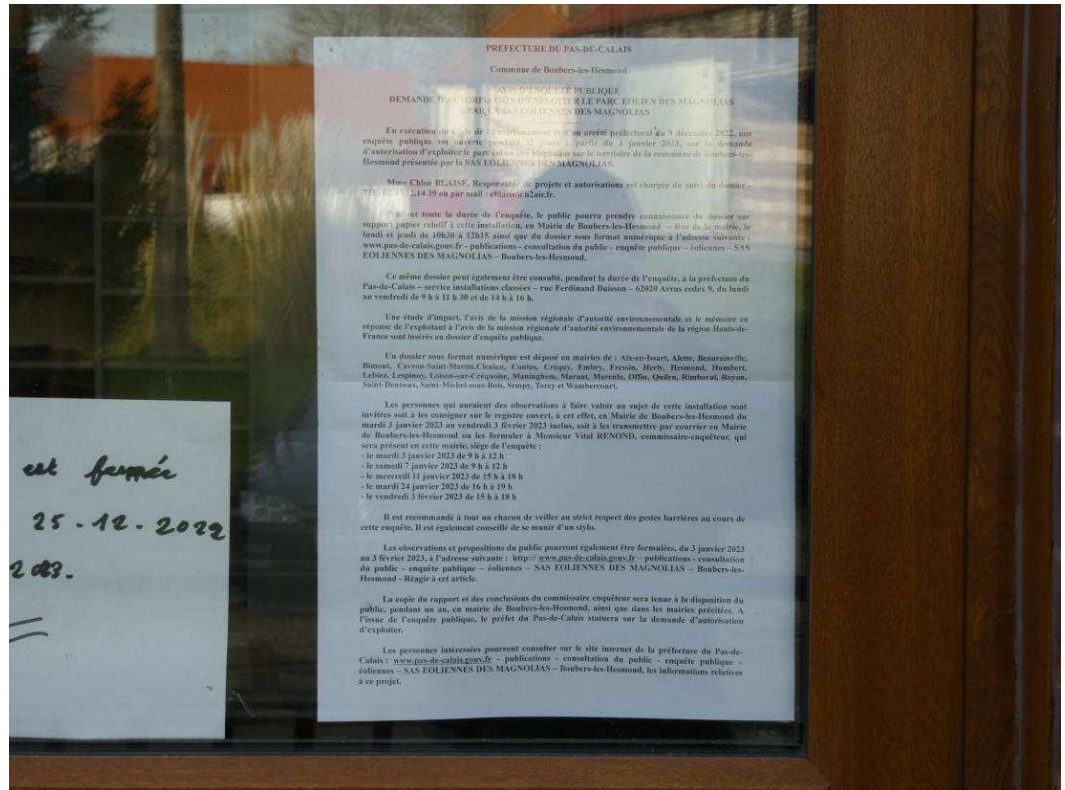 PREFECTURE DU PAS-DE-CALAIS
Commune de Boubers-les-Hesmond
AVIS D'ENQUÊTE PUBLIQUE
DEMANDE D'AUTORISATION D'EXPLOITER LE PARC EOLIEN DES MAGNOLIAS
PAR LA SAS EOLIENNES DES MAGNOLIAS
En exécution du Code de l'environnement et d'un arrêté préfectoral du 9 décembre 2022, une
enquête publique est ouverte pendant 32 jours à partir du 3 janvier 2023, sur la demande
d'autorisation d'exploiter le parc éolien des magnolias sur le territoire de la commune de Boubers-les-
Hesmond présentée par la SAS EOLIENNES DES MAGNOLIAS.
Mme Chloé BLAISE, Responsable de projets et autorisations est chargée du suivi du dossier -
14 39 ou par mail : cblaise@h2air.fr.
Pendant toute la durée de l'enquête, le public pourra prendre connaissance du dossier sur
support papier relatif à cette installation, en Mairie de Boubers-les-Hesmond – Rue de la mairie, le
lundi et jeudi de 10h30 à 12h15 ainsi que du dossier sous format numérique à l'adresse suivante :
www.pas-de-calais.gouv.fr - publications - consultation du public - enquête publique – éoliennes – SAS
EOLIENNES DES MAGNOLIAS – Boubers-les-Hesmond.
Ce même dossier peut également être consulté, pendant la durée de l'enquête, à la préfecture du
Pas-de-Calais – service installations classées – rue Ferdinand Buisson – 62020 Arras cedex 9, du lundi
au vendredi de 9 h à 11 h 30 et de 14 h à 16 h.
Une étude d'impact, l'avis de la mission régionale d'autorité environnementale et le mémoire en
réponse de l'exploitant à l'avis de la mission régionale d'autorité environnementale de la région Hauts-de-
France sont insérés au dossier d'enquête publique.
Un dossier sous format numérique est déposé en mairies de : Aix-en-Issart, Alette, Beaurainville,
Bimont, Cavron-Saint-Martin,Clenleu, Contes, Créquy, Embry, Fressin, Herly, Hesmond, Humbert,
Lebiez, Lespinoy, Loison-sur-Créquoise, Maninghem, Marant, Marenla, Offin, Quilen, Rimboval, Royon,
Saint-Denoeux, Saint-Michel-sous-Bois, Sempy, Torcy et Wambercourt.
Les personnes qui auraient des observations à faire valoir au sujet de cette installation sont
invitées soit à les consigner sur le registre ouvert, à cet effet, en Mairie de Boubers-les-Hesmond du
mardi 3 janvier 2023 au vendredi 3 février 2023 inclus, soit à les transmettre par courrier en Mairie
de Boubers-les-Hesmond ou les formuler à Monsieur Vital RENOND, commissaire-enquêteur, qui
sera présent en cette mairie, siège de l'enquête :
- le mardi 3 janvier 2023 de 9 h à 12 h
- le samedi 7 janvier 2023 de 9 h à 12 h
- le mercredi 11 janvier 2023 de 15 h à 18 h
- le mardi 24 janvier 2023 de 16 h à 19 h
- le vendredi 3 février 2023 de 15 h à 18 h
Il est recommandé à tout un chacun de veiller au strict respect des gestes barrières au cours de
cette enquête. Il est également conseillé de se munir d'un stylo.
Les observations et propositions du public pourront également être formulées, du 3 janvier 2023
au 3 février 2023, à l'adresse suivante : http:// www.pas-de-calais.gouv.fr – publications - consultation
du public - enquête publique – éoliennes – SAS EOLIENNES DES MAGNOLIAS – Boubers-les-
Hesmond - Réagir à cet article.
La copie du rapport et des conclusions du commissaire enquêteur sera tenue à la disposition du
public, pendant un an, en mairie de Boubers-les-Hesmond, ainsi que dans les mairies précitées. A
l'issue de l'enquête publique, le préfet du Pas-de-Calais statuera sur la demande d'autorisation
d'exploiter.
Les personnes intéressées pourront consulter sur le site internet de la préfecture du Pas-de-
Calais : www.pas-de-calais.gouv.fr - publications - consultation du public - enquête publique –
éoliennes – SAS EOLIENNES DES MAGNOLIAS – Boubers-les-Hesmond, les informations relatives
à ce projet.
est fermée
25.12.2022
2023.